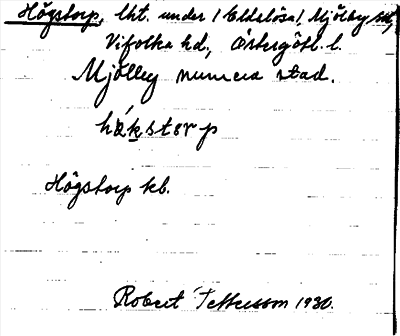 Högstorp, lht. under 1 Eldslösa 1, Mjölby sn,
Vifolka hd, Östergötl. l.
Mjölby numera stad.
hö́kstorp
Högstorp kb.
Robert Pettersson 1930.